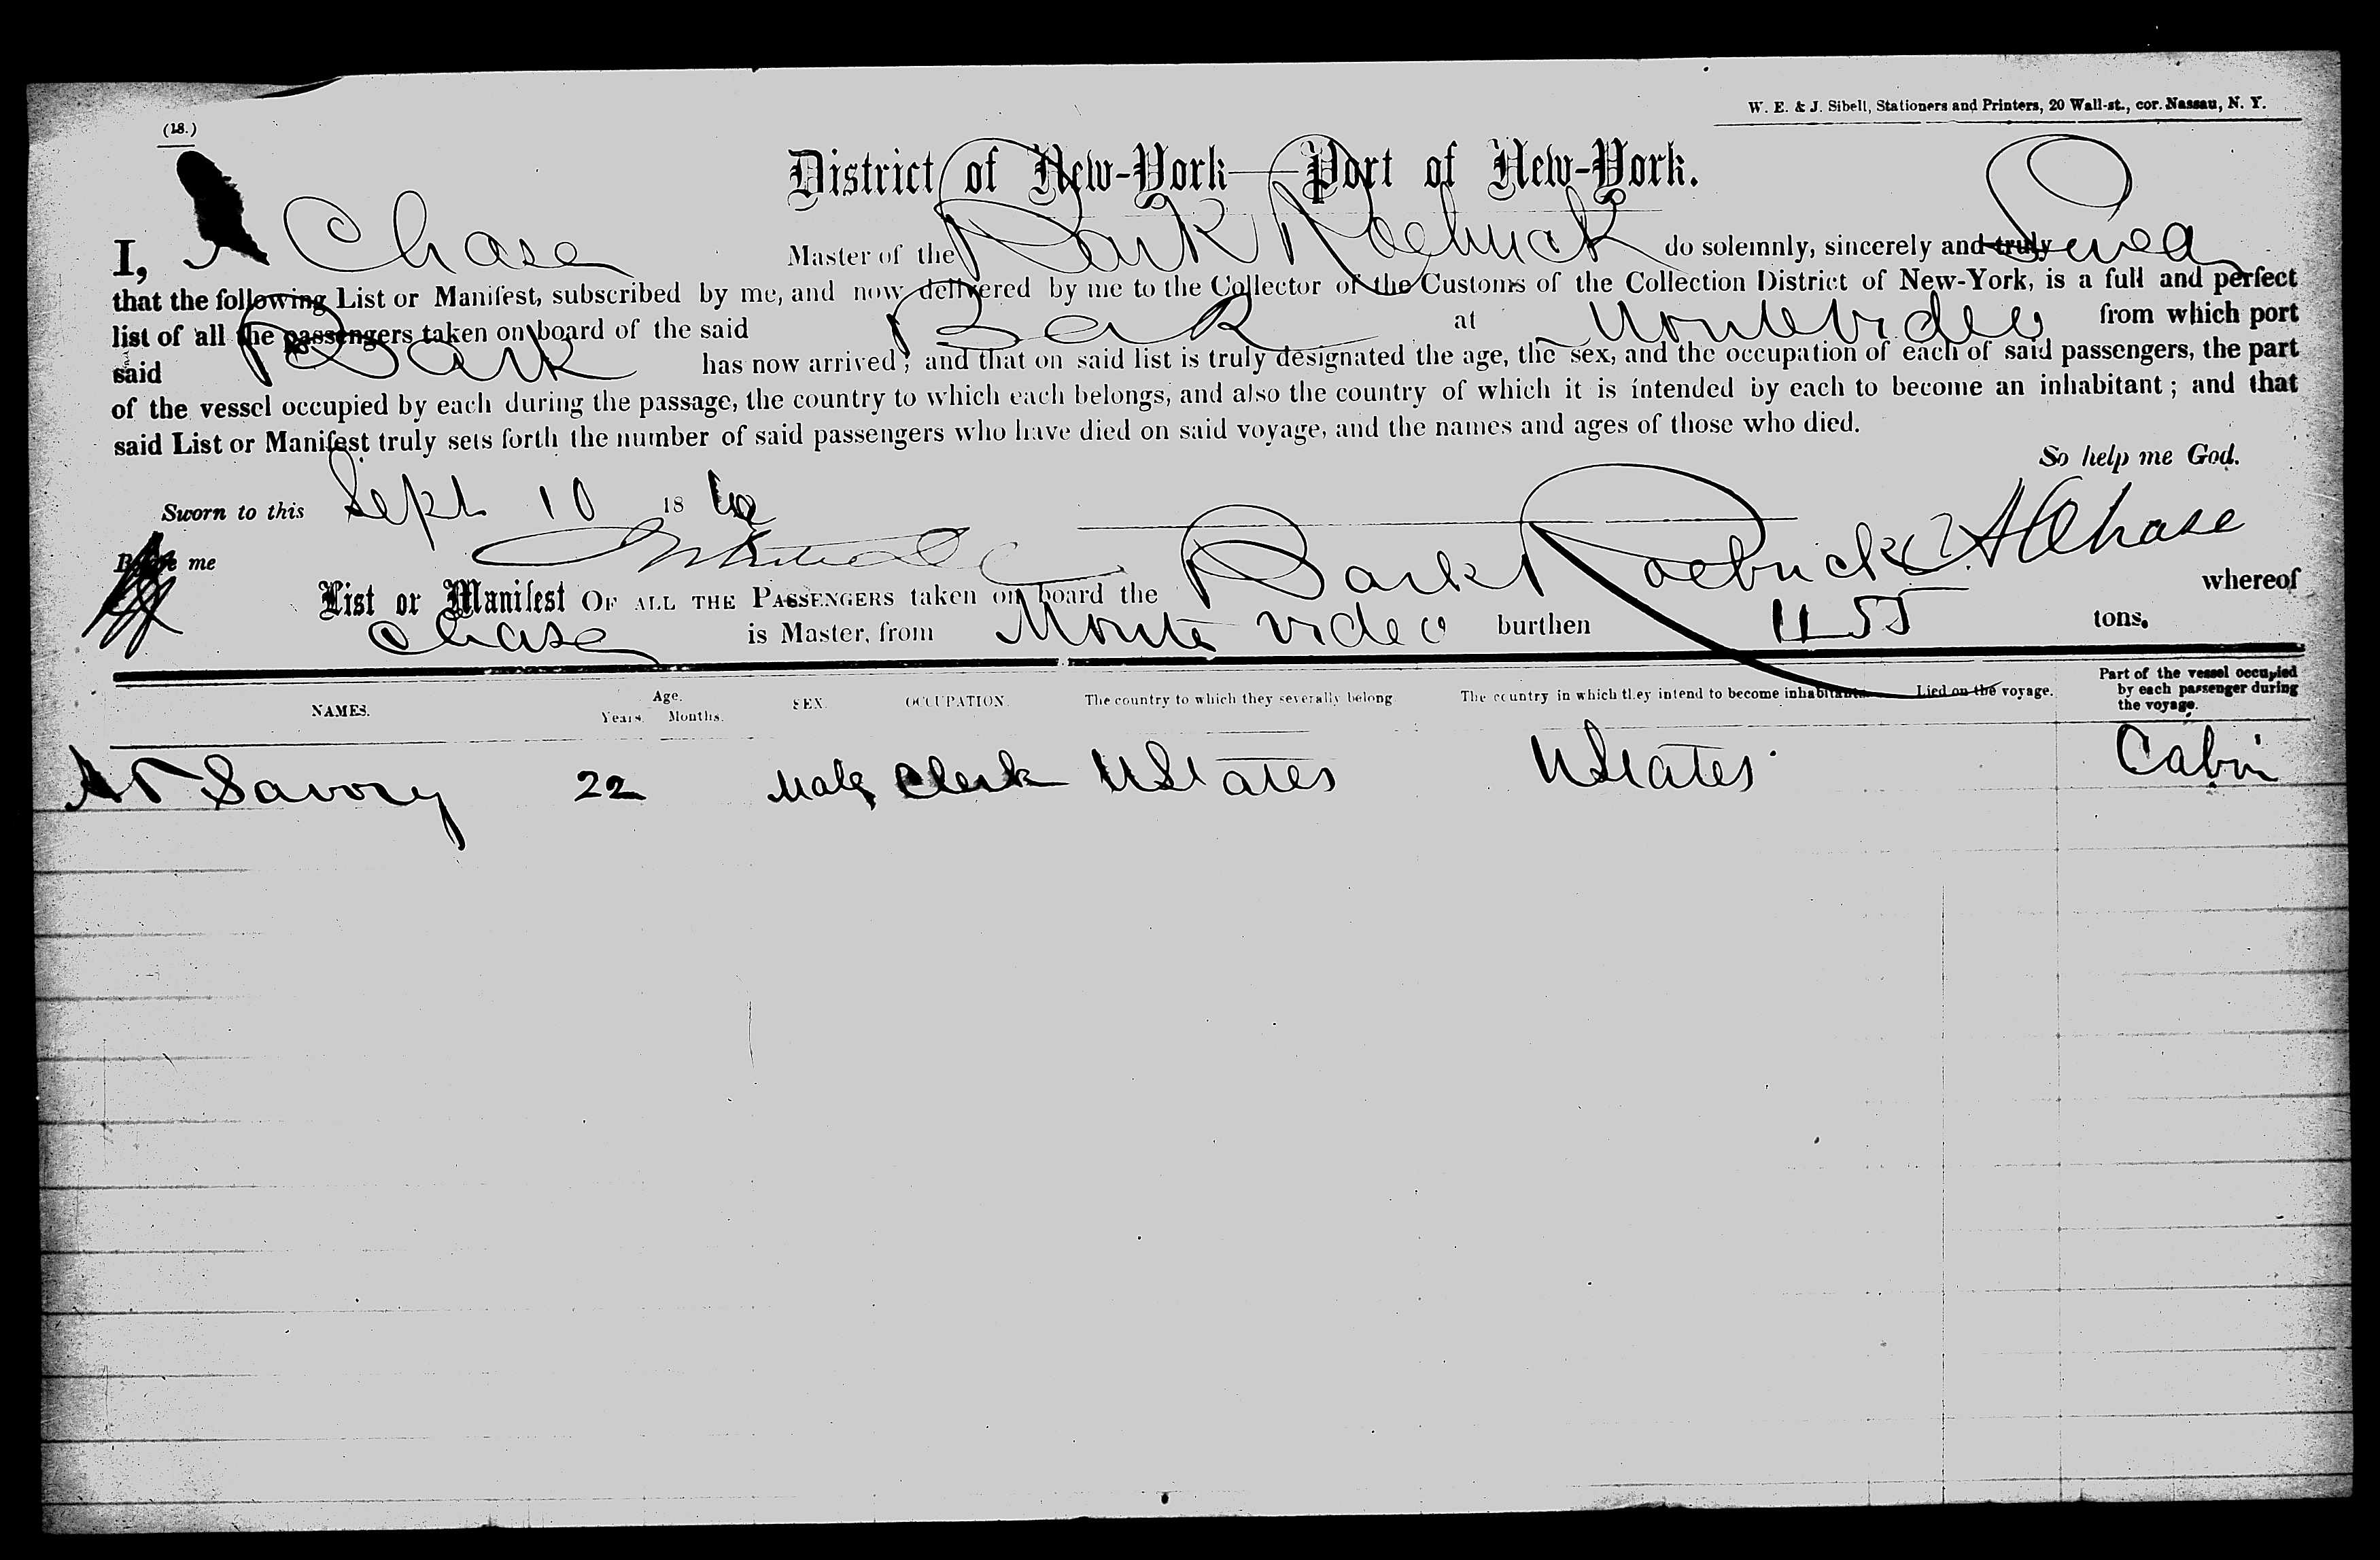 W. E. & J. Sibell, Stationers and Printers, 20 Wall-st., cor. Nassau, N. Y.
(18.)
District of New-York—Port of New-York.
I, Chase Master of the Bark Roebuck do solemnly, sincerely and truly Swear
that the following List or Manifest, subscribed by me, and now delivered by me to the Collector of the Customs of the Collection District of New-York, is a full and perfect
list of all the passengers taken on board of the said Bark at Montevideo from which port
said Bark has now arrived; and that on said list is truly designated the age, the sex, and the occupation of each of said passengers, the part
of the vessel occupied by each during the passage, the country to which each belongs, and also the country of which it is intended by each to become an inhabitant; and that
said List or Manifest truly sets forth the number of said passengers who have died on said voyage, and the names and ages of those who died.
So help me God.
Sworn to this Sept 10 18
Before me Chase
List or Manifest OF ALL THE PASSENGERS taken on board the Bark Roebuck whereof
Chase is Master, from Monte video burthen 455 tons.
NAMES. Age. Years. Months. SEX. OCCUPATION. The country to which they severally belong The country in which they intend to become inhabitants. Died on the voyage. Part of the vessel occupied by each passenger during the voyage.
Savory 22 Male Clerk UStates UStates Cabin